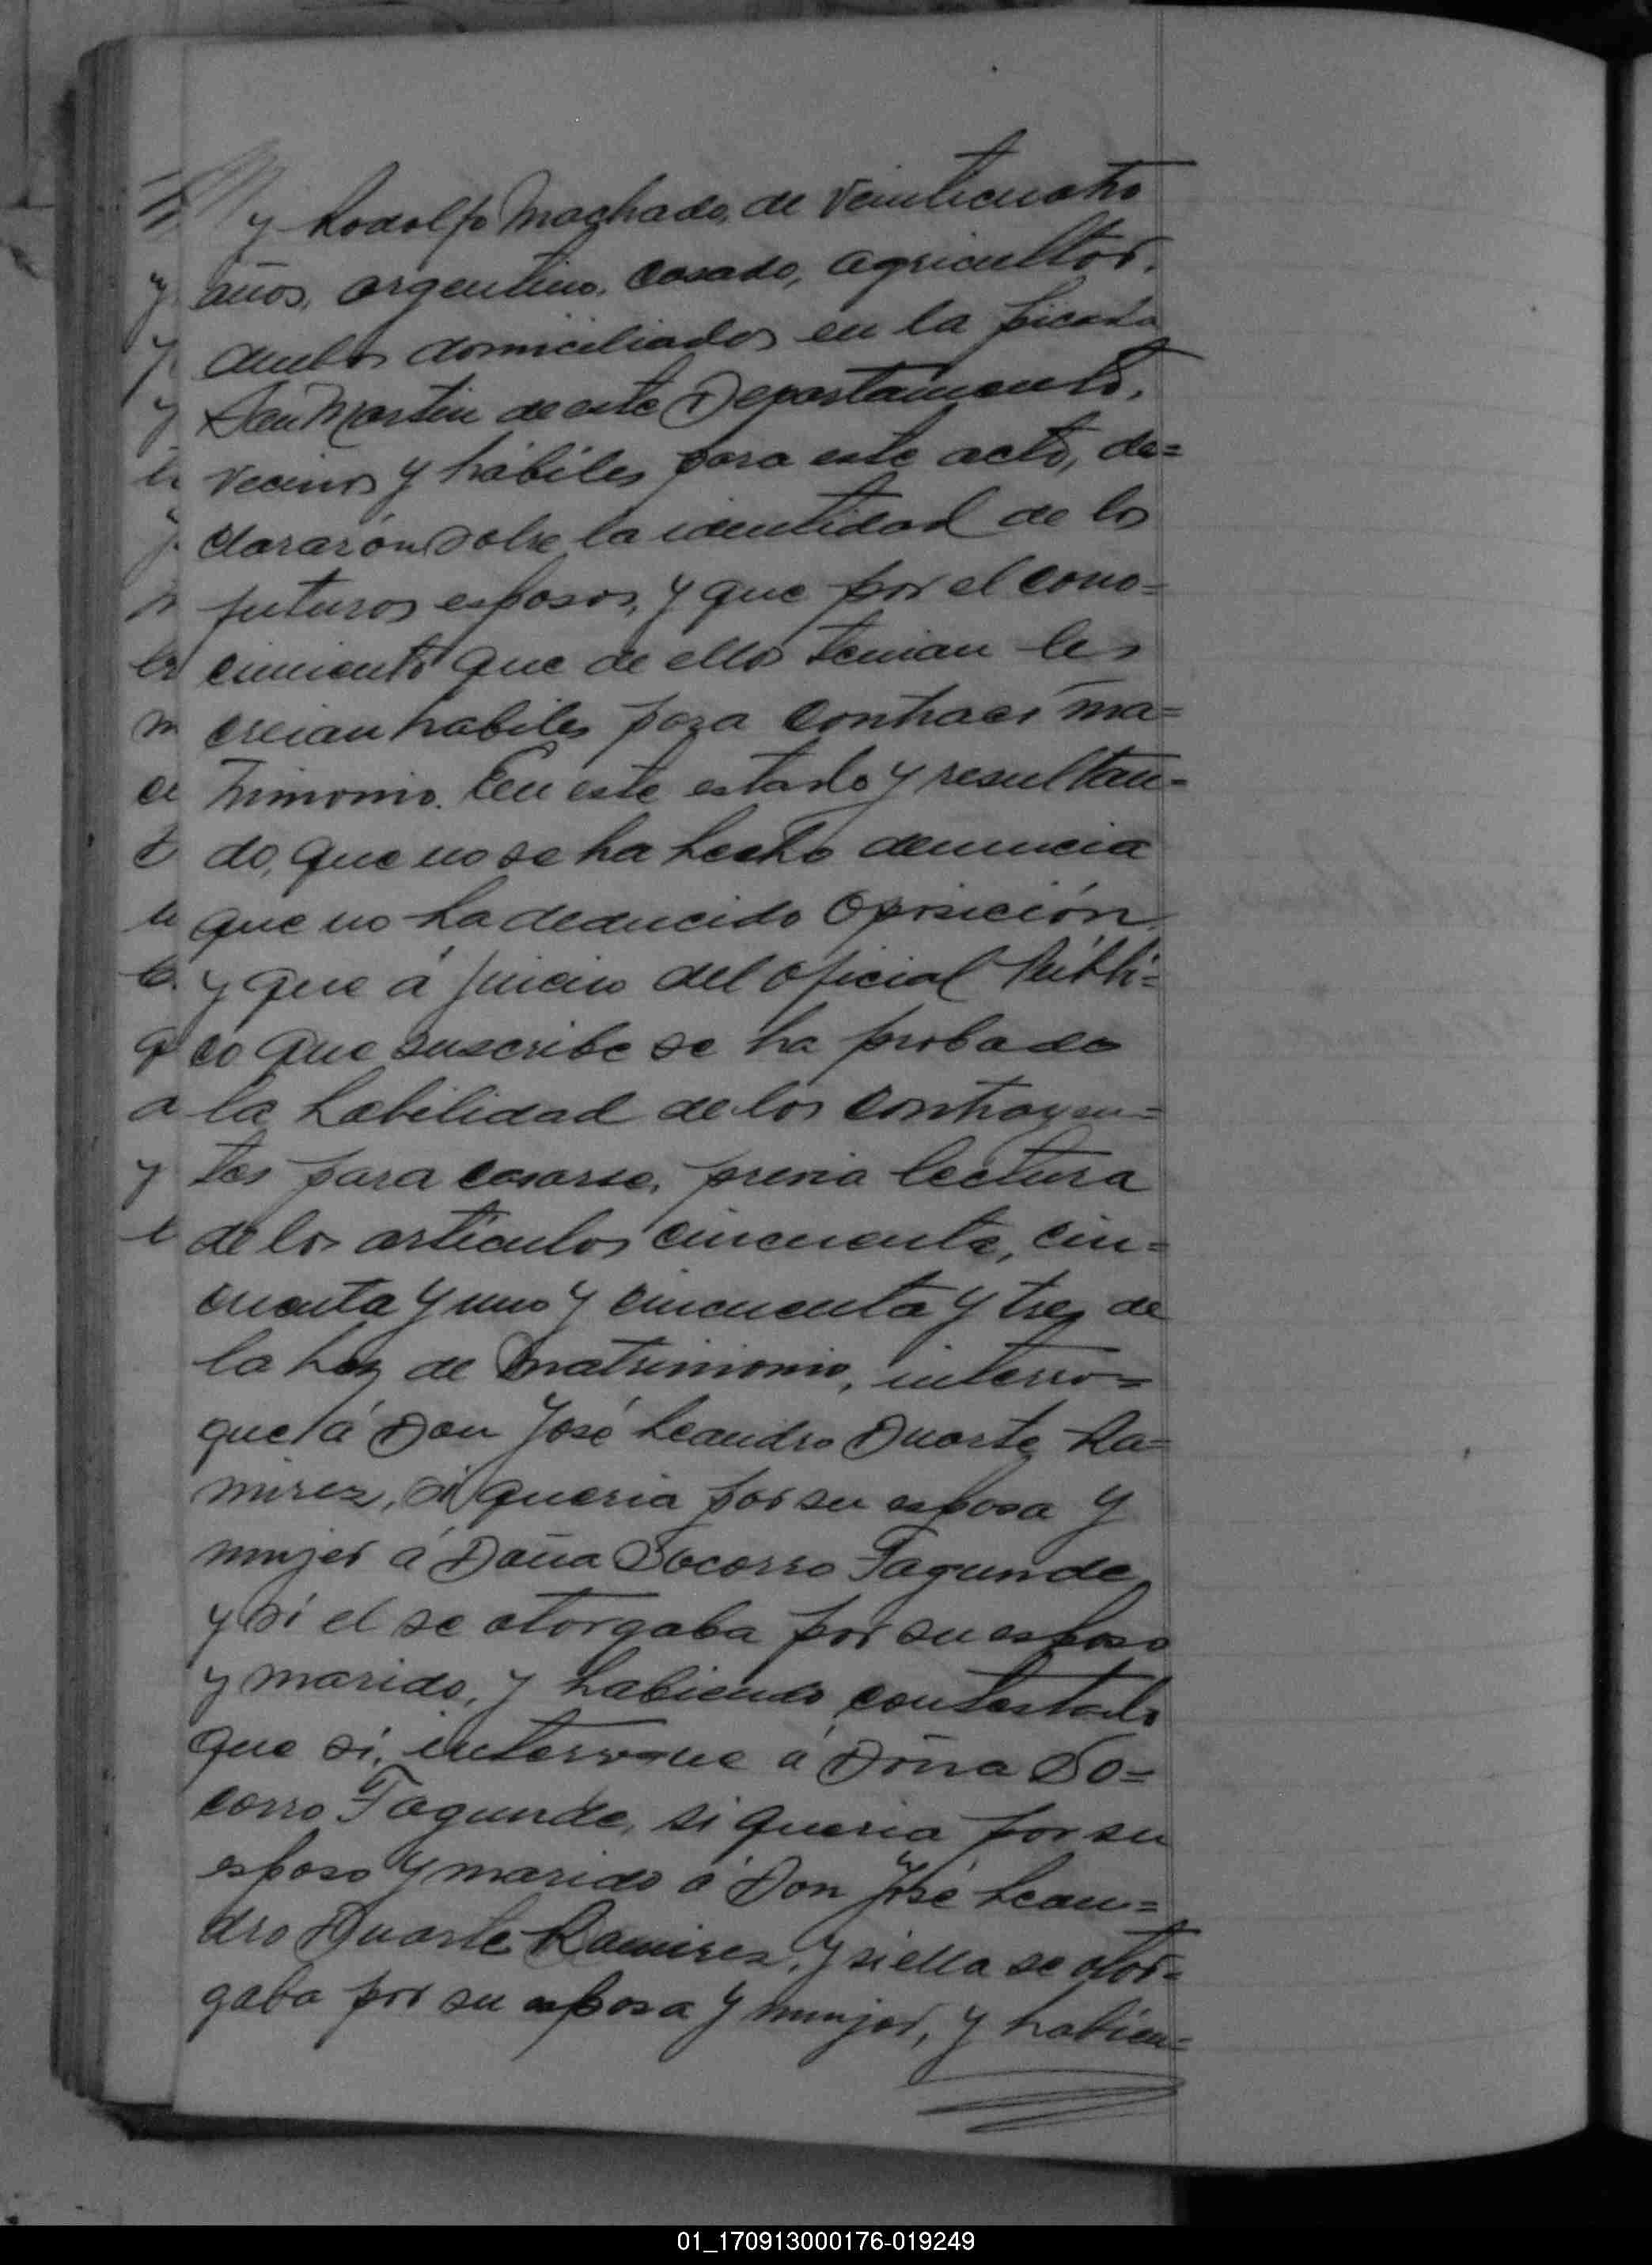 y Rodolfo Machado, de veinticuatro
años, argentino, casado, agricultor,
ambos domiciliados en la picada
San Martin de este Departamento,
vecinos y hábiles para este acto, de=
clararon sobre la identidad de los
futuros esposos, y que por el cono=
cimiento que de ellos tenian les
creian habiles para contraer ma=
trimonio. En este estado y resultan=
do, que no se ha hecho denuncia
que no ha deducido oposición
y que á juicio del oficial Públi=
co que suscribe se ha probado
la habilidad de los contrayen=
tes para casarse, previa lectura
de los articulos cincuenta, cin=
cuenta y uno y cincuenta y tres de
la Ley de Matrimonio, interro=
gue á Don José Leandro Duarte Ra=
mirez, si queria por su esposa y
mujer á Doña Socorro Fagunde
y si el se otorgaba por su esposo
y marido, y habiendo contestado
que si, interrogue á Doña So=
corro Fagunde, si queria por su
esposo y marido á Don José Lean=
dro Duarte Ramirez, y si ella se otor=
gaba por su esposa y mujer, y habien=
01_170913000176-019249